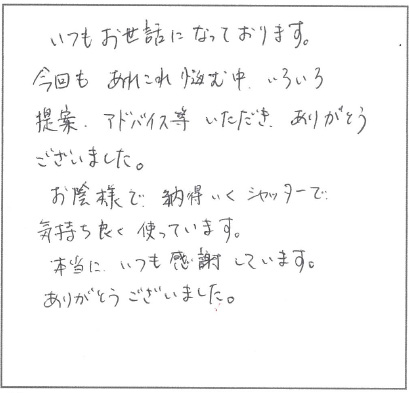 いつもお世話になっております。
今回も あれこれ悩む中、いろいろ
提案、アドバイス等 いただき、ありがとう
ございました。
お陰様で、納得いくシャッターで
気持ち良く使っています。
本当に、いつも感謝しています。
ありがとうございました。